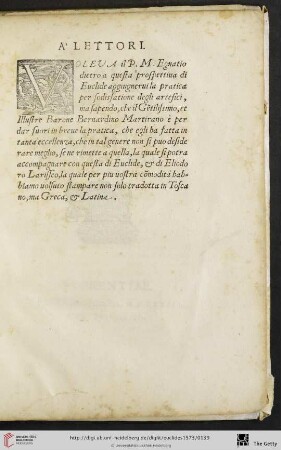 A' LETTORI.
VOLEVA il P. M. Egnatio
dietro a questa prospettiua di
Euclide aggugnerui la pratica
per sodisfatione degli artefici,
ma sapendo, che il Gētilissimo, et
Illustre Barone Bernardino Martirano è per
dar fuori in breue la pratica, che egli ha fatta in
tanta eccellenza, che in tal genere non si puo deside
rare meglio, se ne rimette a quella, la quale si potra
accompagnare con questa di Euclide, & di Eliodo
ro Larisseo, la quale per piu uostra cōmodità hab-
biamo uoluto stampare non solo tradotta in Tosca
no, ma Greca, & Latina.
http://digi.ub.uni-heidelberg.de/diglit/euclides1573/0133
The Getty